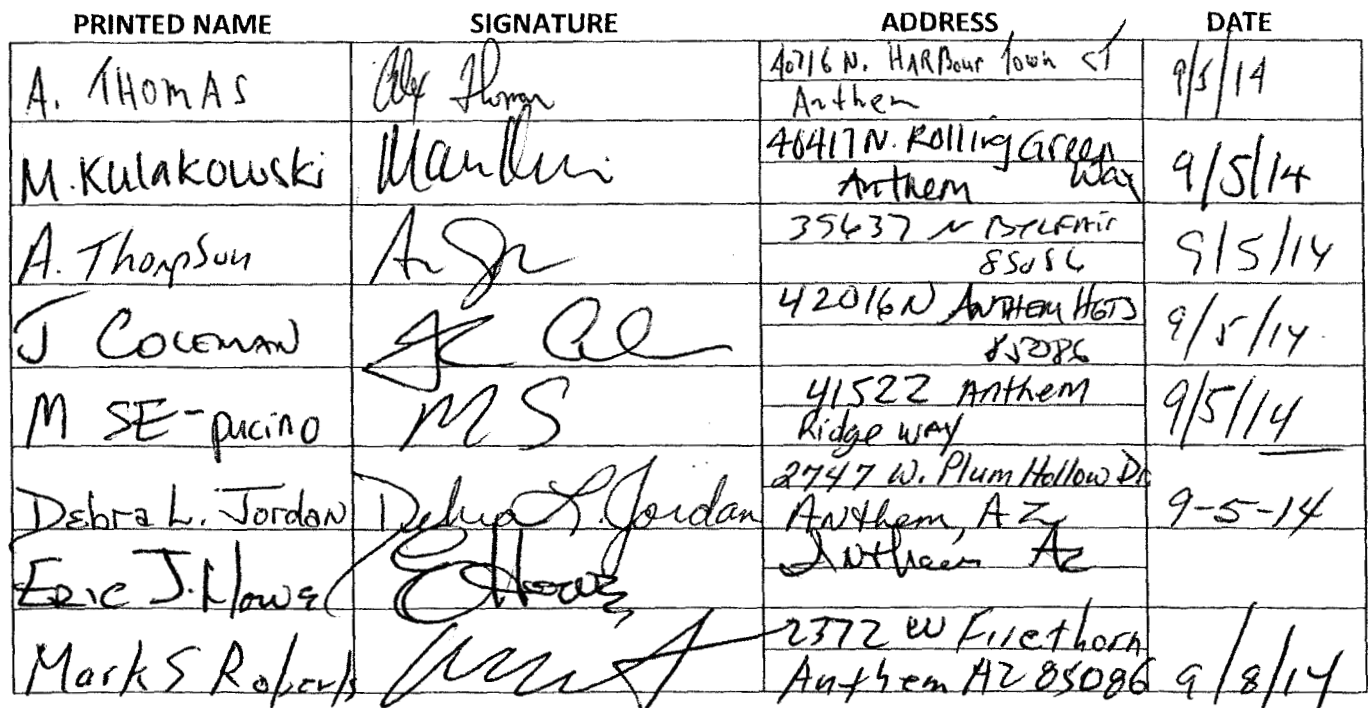 PRINTED NAME SIGNATURE ADDRESS DATE
A. THOMAS Alex Thomas 40716 N. HARBour Town CT 9/5/14
Anthem
M. Kulakowski 40417 N. Rolling Green Way 9/5/14
Anthem
A. Thompson 35637 N BELFAIR 9/5/14
85086
J COLEMAN 42016 N ANTHEM HGTS 9/5/14
85086
M SE-pucino MS 41522 Anthem 9/5/14
Ridge WAY
Debra L. Jordan Debra L. Jordan 2747 W. Plum Hollow Dr 9-5-14
Anthem, AZ
Eric J. Howe Anthem Az
Mark S Roberts 2372 W Firethorn 9/8/14
Anthem AZ 85086